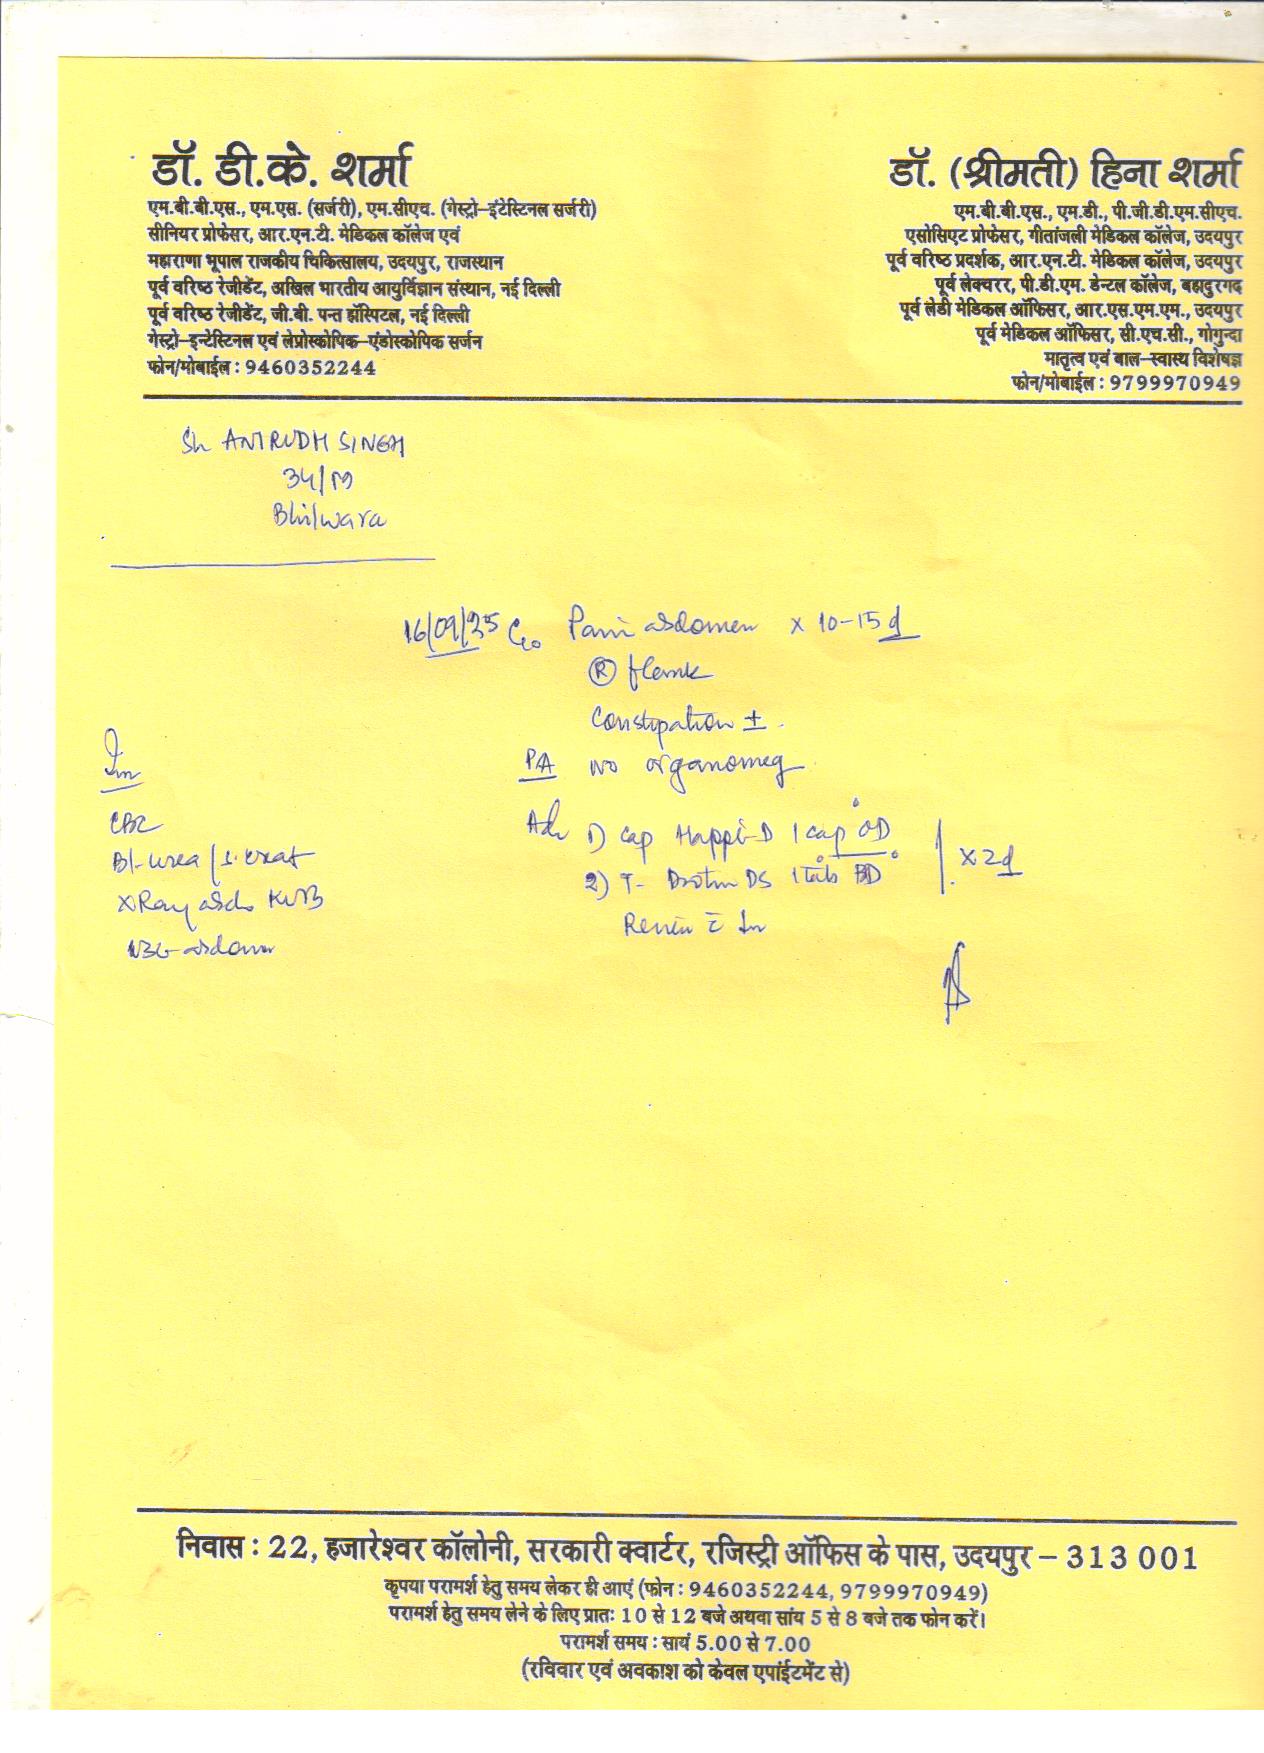 डॉ. डी.के. शर्मा
एम.बी.बी.एस., एम.एस. (सर्जरी), एम.सीएच. (गेस्ट्रो-इंटेस्टिनल सर्जरी)
सीनियर प्रोफेसर, आर.एन.टी. मेडिकल कॉलेज एवं
महाराणा भूपाल राजकीय चिकित्सालय, उदयपुर, राजस्थान
पूर्व वरिष्ठ रेजीडेंट, अखिल भारतीय आयुर्विज्ञान संस्थान, नई दिल्ली
पूर्व वरिष्ठ रेजीडेंट, जी.बी. पन्त हॉस्पिटल, नई दिल्ली
गेस्ट्रो-इन्टेस्टिनल एवं लेप्रोस्कोपिक-एंडोस्कोपिक सर्जन
फोन/मोबाईल : 9460352244
डॉ. (श्रीमती) हिना शर्मा
एम.बी.बी.एस., एम.डी., पी.जी.डी.एम.सीएच.
एसोसिएट प्रोफेसर, गीतांजली मेडिकल कॉलेज, उदयपुर
पूर्व वरिष्ठ प्रदर्शक, आर.एन.टी. मेडिकल कॉलेज, उदयपुर
पूर्व लेक्चरर, पी.डी.एम. डेन्टल कॉलेज, बहादुरगढ़
पूर्व लेडी मेडिकल ऑफिसर, आर.एस.एम.एम., उदयपुर
पूर्व मेडिकल ऑफिसर, सी.एच.सी., गोगुन्दा
मातृत्व एवं बाल-स्वास्थ्य विशेषज्ञ
फोन/मोबाईल : 9799970949
Sh ANIRUDH SINGH
34/M
Bhilwara
16/09/25 C/o Pain abdomen x 10-15 d
Ⓡ flank
Constipation ±
PA No organomeg
Adv 1) Cap Happi-D 1 cap OD
2) T- Drotin DS 1 tab BD
x 2d
Review c̄ Inv
Inv
CBC
Bl-urea / S. creat
X Ray abdo KUB
USG abdomen
निवास : 22, हजारेश्वर कॉलोनी, सरकारी क्वार्टर, रजिस्ट्री ऑफिस के पास, उदयपुर – 313 001
कृपया परामर्श हेतु समय लेकर ही आएं (फोन : 9460352244, 9799970949)
परामर्श हेतु समय लेने के लिए प्रातः 10 से 12 बजे अथवा सांय 5 से 8 बजे तक फोन करें।
परामर्श समय : सायं 5.00 से 7.00
(रविवार एवं अवकाश को केवल एपांईटमेंट से)